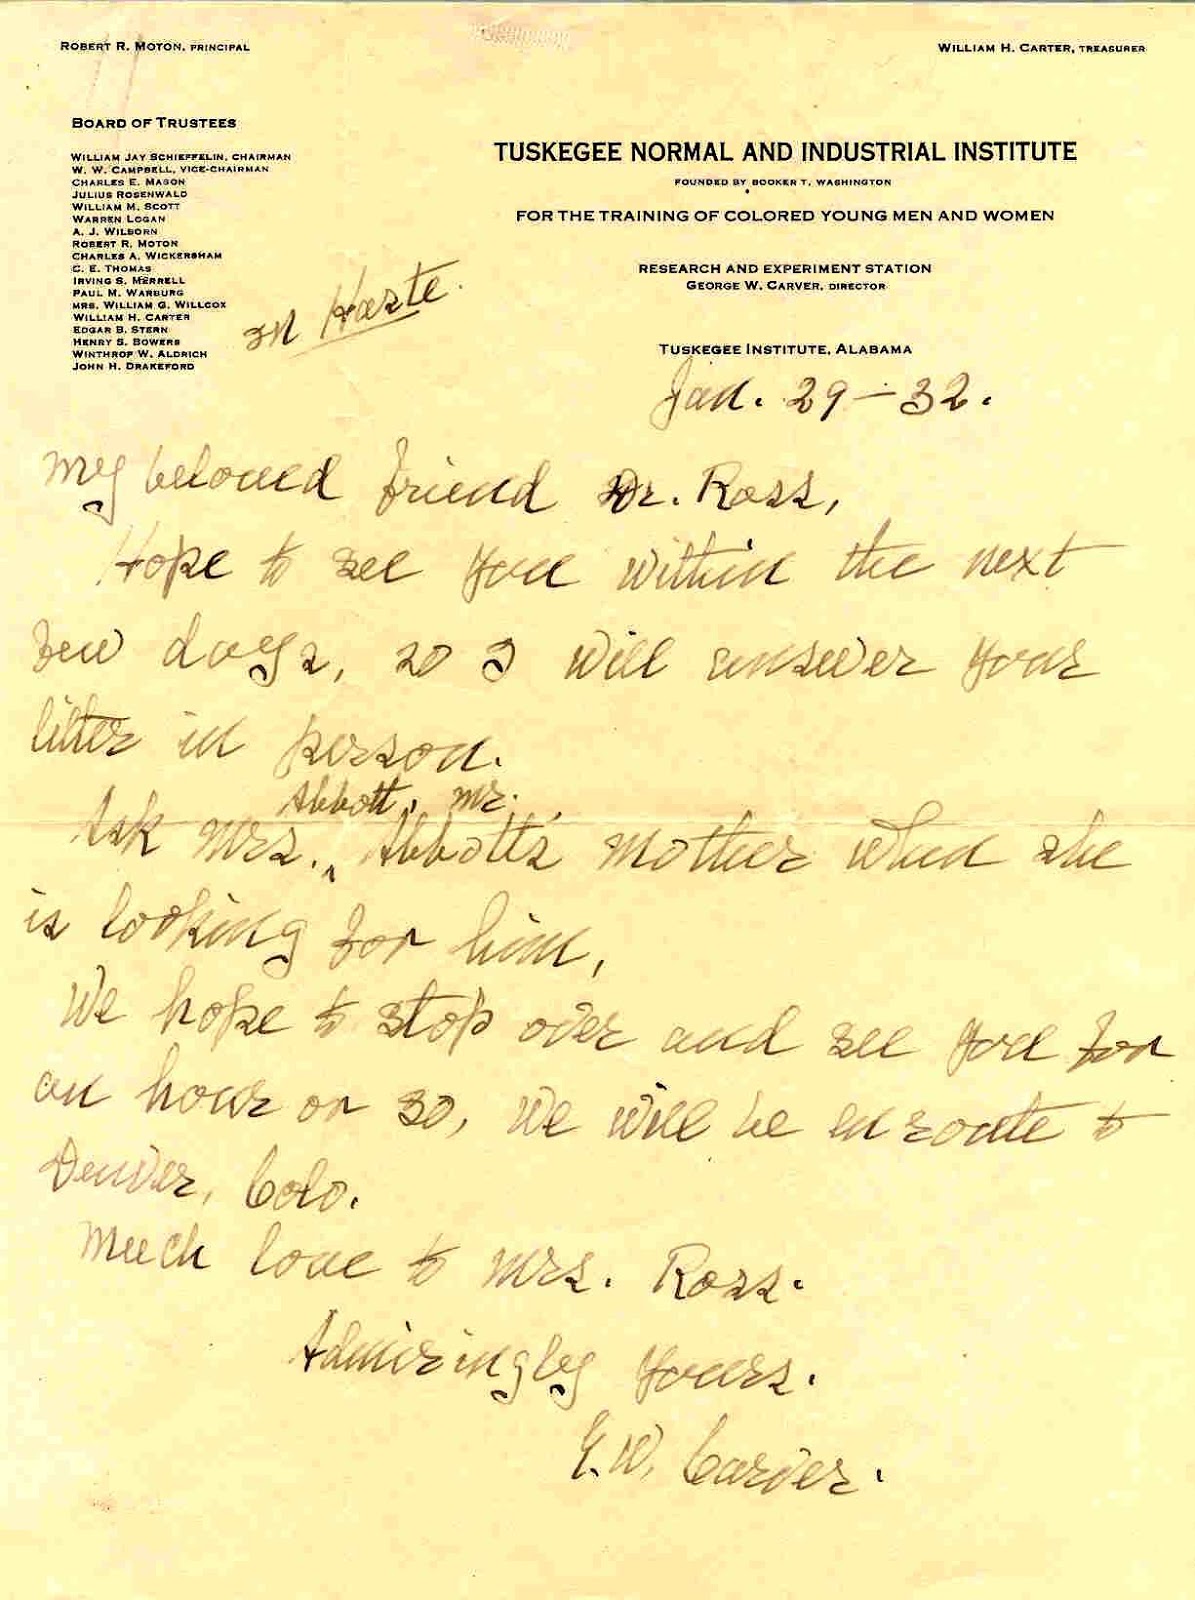 ROBERT R. MOTON, PRINCIPAL
WILLIAM H. CARTER, TREASURER
BOARD OF TRUSTEES
WILLIAM JAY SCHIEFFELIN, CHAIRMAN
W. W. CAMPBELL, VICE-CHAIRMAN
CHARLES E. MASON
JULIUS ROSENWALD
WILLIAM M. SCOTT
WARREN LOGAN
A. J. WILBORN
ROBERT R. MOTON
CHARLES A. WICKERSHAM
C. E. THOMAS
IRVING S. MERRELL
PAUL M. WARBURG
MRS. WILLIAM G. WILLCOX
WILLIAM H. CARTER
EDGAR B. STERN
HENRY S. BOWERS
WINTHROP W. ALDRICH
JOHN H. DRAKEFORD
TUSKEGEE NORMAL AND INDUSTRIAL INSTITUTE
FOUNDED BY BOOKER T. WASHINGTON
FOR THE TRAINING OF COLORED YOUNG MEN AND WOMEN
RESEARCH AND EXPERIMENT STATION
GEORGE W. CARVER, DIRECTOR
TUSKEGEE INSTITUTE, ALABAMA
In Haste.
Jan. 29-32.
My beloved friend Dr. Ross,
Hope to see you within the next
few days, so I will answer your
letter in person.
Abbott, Mr.
Ask Mrs. Abbott's mother when she
is looking for him,
We hope to stop over and see you for
an hour or so, We will be enroute to
Denver, Colo.
Much love to Mrs. Ross.
Admiringly yours.
G. W. Carver.